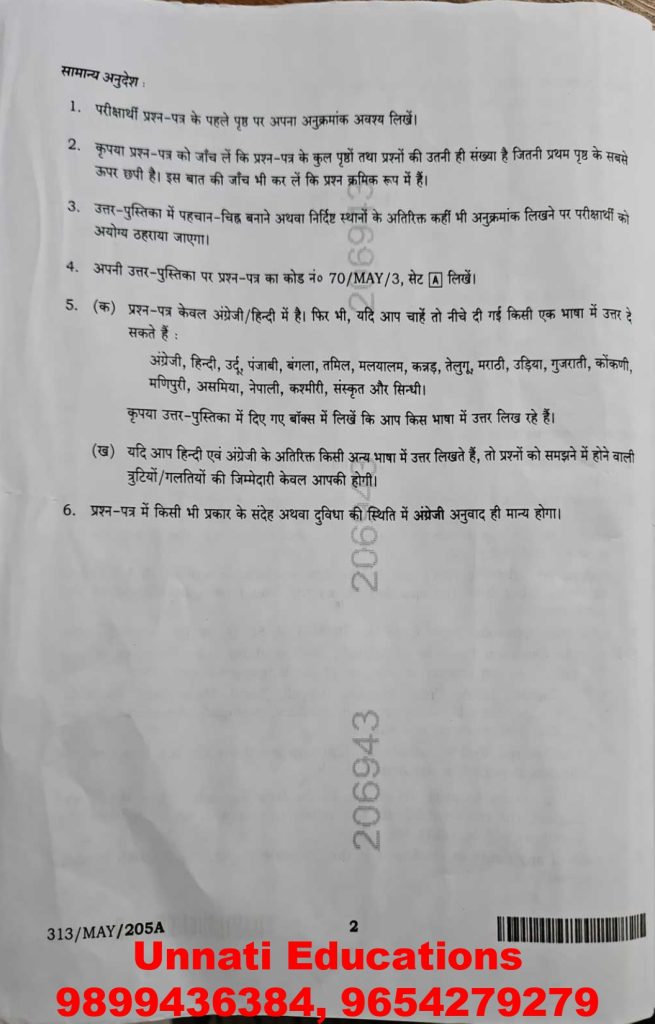 सामान्य अनुदेश :
1. परीक्षार्थी प्रश्न-पत्र के पहले पृष्ठ पर अपना अनुक्रमांक अवश्य लिखें।
2. कृपया प्रश्न-पत्र को जाँच लें कि प्रश्न-पत्र के कुल पृष्ठों तथा प्रश्नों की उतनी ही संख्या है जितनी प्रथम पृष्ठ के सबसे
ऊपर छपी है। इस बात की जाँच भी कर लें कि प्रश्न क्रमिक रूप में हैं।
3. उत्तर-पुस्तिका में पहचान-चिह्न बनाने अथवा निर्दिष्ट स्थानों के अतिरिक्त कहीं भी अनुक्रमांक लिखने पर परीक्षार्थी को
अयोग्य ठहराया जाएगा।
4. अपनी उत्तर-पुस्तिका पर प्रश्न-पत्र का कोड नं० 70/MAY/3, सेट A लिखें।
5. (क) प्रश्न-पत्र केवल अंग्रेजी/हिन्दी में है। फिर भी, यदि आप चाहें तो नीचे दी गई किसी एक भाषा में उत्तर दे
सकते हैं :
अंग्रेजी, हिन्दी, उर्दू, पंजाबी, बंगला, तमिल, मलयालम, कन्नड़, तेलुगू, मराठी, उड़िया, गुजराती, कोंकणी,
मणिपुरी, असमिया, नेपाली, कश्मीरी, संस्कृत और सिन्धी।
कृपया उत्तर-पुस्तिका में दिए गए बॉक्स में लिखें कि आप किस भाषा में उत्तर लिख रहे हैं।
(ख) यदि आप हिन्दी एवं अंग्रेजी के अतिरिक्त किसी अन्य भाषा में उत्तर लिखते हैं, तो प्रश्नों को समझने में होने वाली
त्रुटियों/गलतियों की जिम्मेदारी केवल आपकी होगी।
6. प्रश्न-पत्र में किसी भी प्रकार के संदेह अथवा दुविधा की स्थिति में अंग्रेजी अनुवाद ही मान्य होगा।
206943
206943
206943
313/MAY/205A
2
Unnati Educations
9899436384, 9654279279